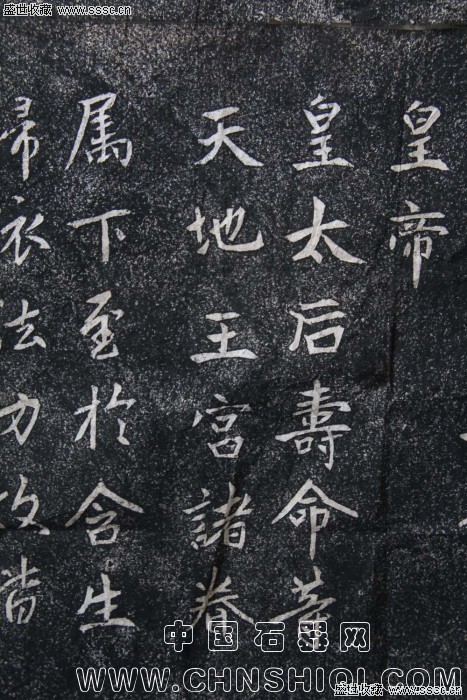 盛世收藏 www.sssc.cn
盛世收藏 www.sssc.cn
皇帝
皇太后壽命等
天地王宮諸眷
属下至於含生
帰依法力故皆
中国石器网
WWW.CHNSHIQI.COM
盛世收藏 www.sssc.cn